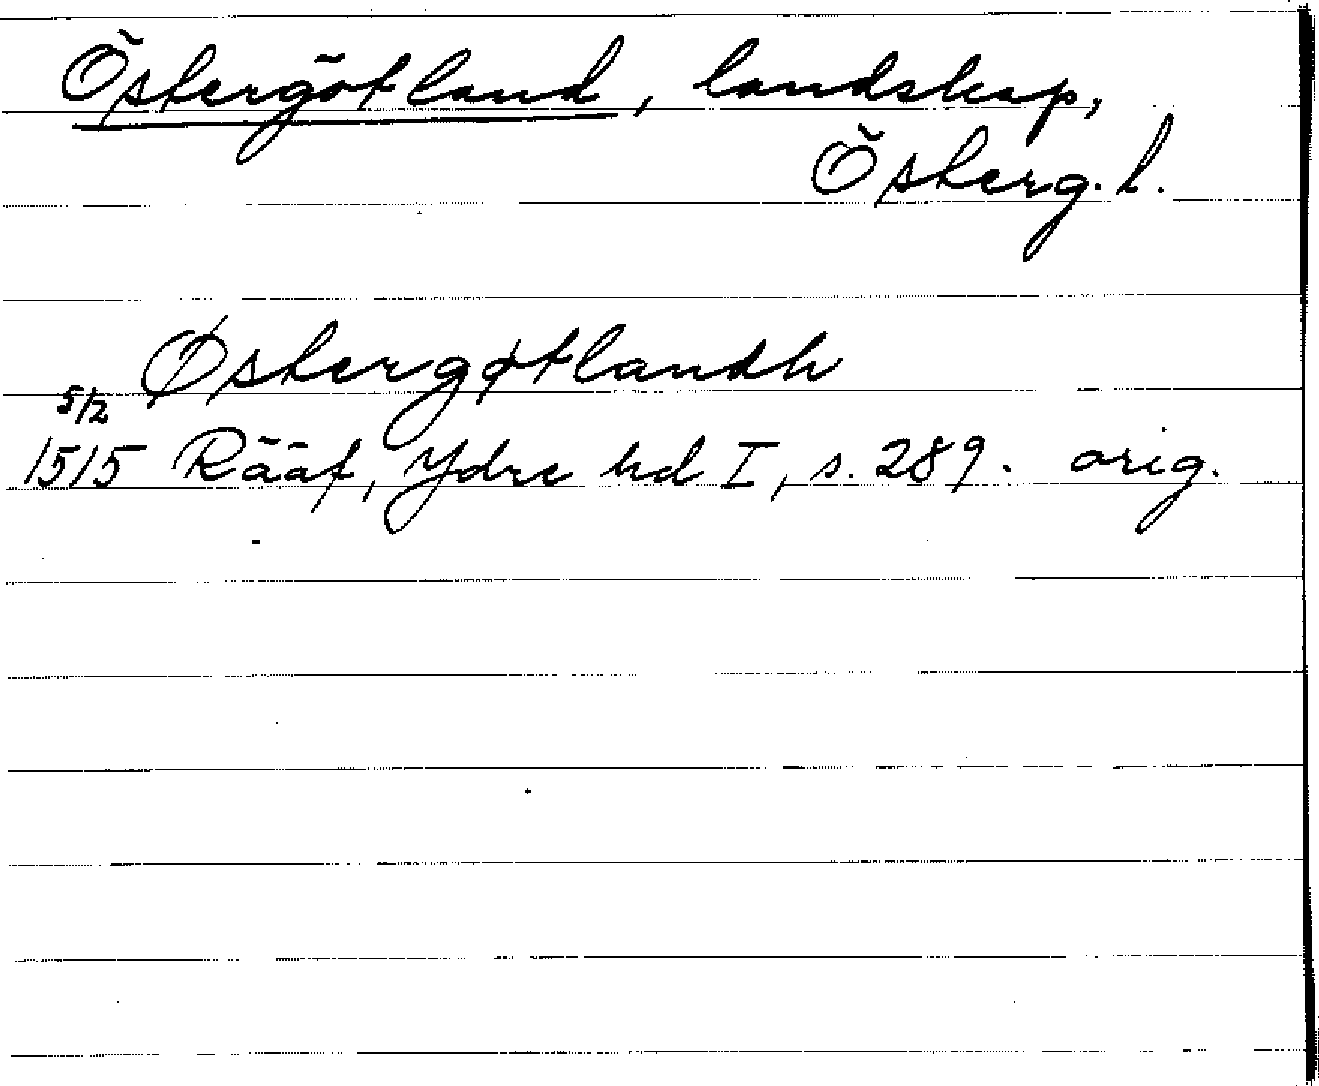 Östergötland, landskap,
Österg. l.
Østergøtlandh
5/2
1515 Rääf, Ydre hd I, s. 289. orig.